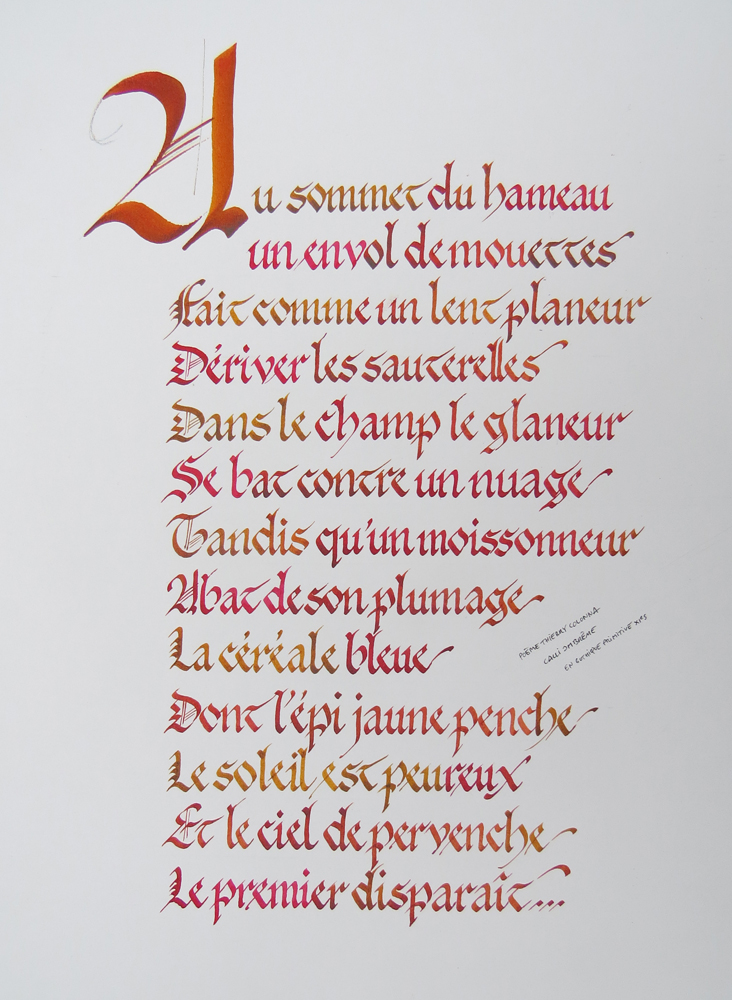 Au sommet du hameau
un envol de mouettes
Fait comme un lent planeur
Dériver les sauterelles
Dans le champ le glaneur
Se bat contre un nuage
Tandis qu'un moissonneur
Abat de son plumage
La céréale bleue
Dont l'épi jaune penche
Le soleil est peureux
Et le ciel de pervenche
Le premier disparaît...
POÈME THIERRY COLONNA
CALLI OM BHÊME
EN GOTHIQUE PRIMITIVE